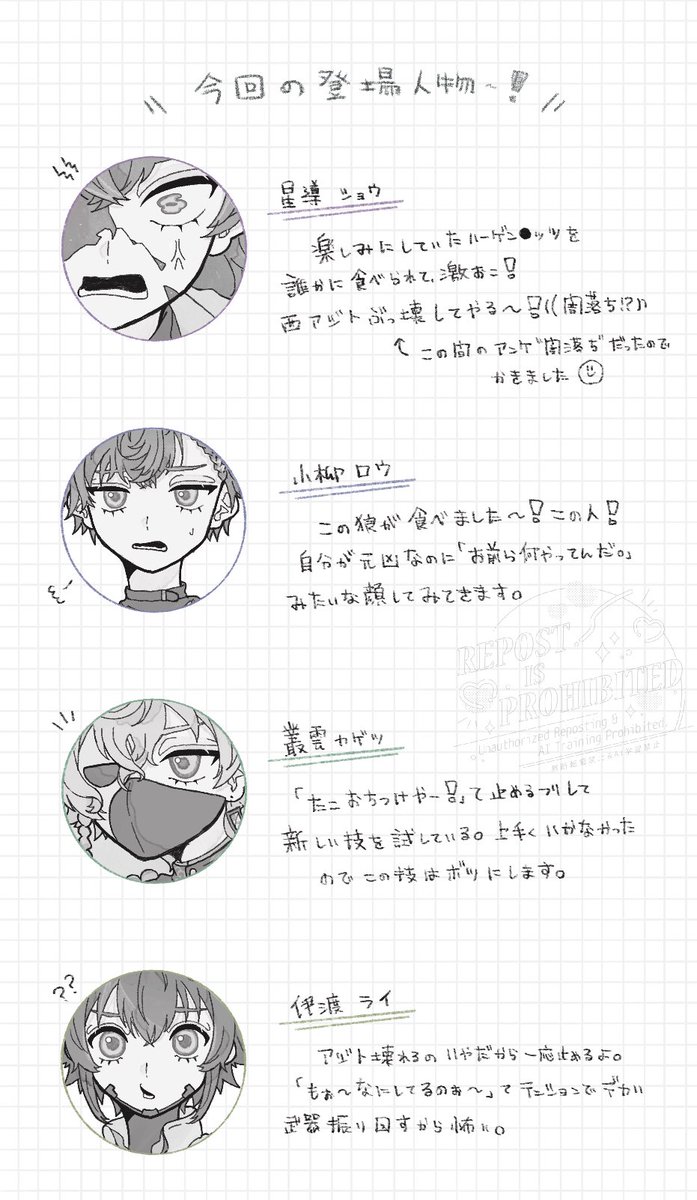 今回の登場人物~!
星導 ショウ
楽しみにしていたハーゲン●ッツを
誰かに食べられて、激おこ!
西アジトぶっ壊してやる～!((闇落ち!?))
↑ この間のアンケ"闇落ち"だったので
かきました
小柳 ロウ
この狼が食べました～!この人!
自分が元凶なのに「お前ら何やってんだ。」
みたいな顔してみてきます。
REPOST
IS
PROHIBITED
Unauthorized Reposting &
AI Training Prohibited.
叢雲 カゲツ
「たこおちつけやー!」て止めるフリして
新しい技を試している。上手くいかなかった
のでこの技はボツにします。
伊渡 ライ
??
アジト壊れるのいやだから一応止めるよ。
「もぉ～なにしてるのぉ～」てテンションでデカい
武器振り回すから怖い。